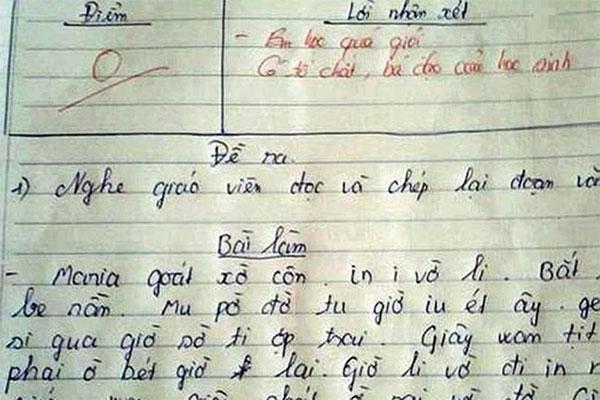 Điểm
Lời nhận xét
0
- Em học quá giỏi
Có tố chất, bá đạo của học sinh
Đề ra.
1) Nghe giáo viên đọc và chép lại đoạn văn
Bài làm
- Maria goát xờ côn. in i vờ li. Bất
be nằn. Mu pờ đờ tu giờ iu ét ây. ge
si qua giờ sờ ti ớp trai. Giây xam tịt
phai ờ bét giờ lai. Giờ li vờ đi in